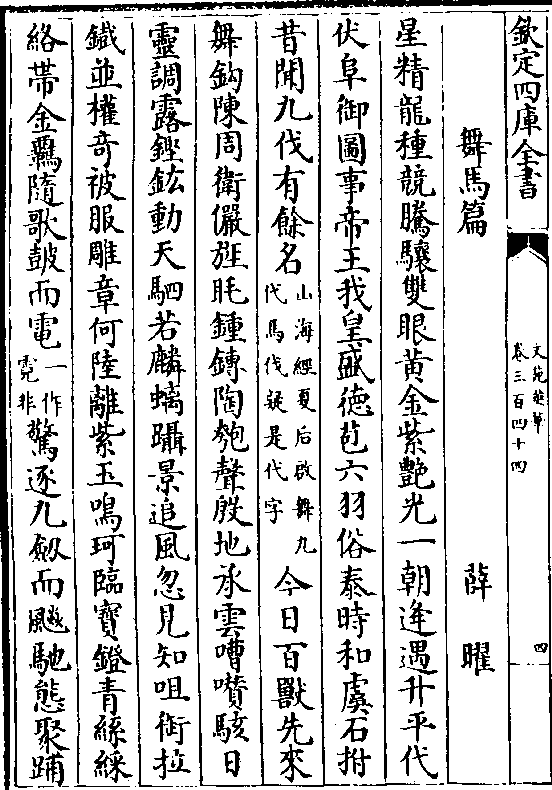 欽定四庫全書
文苑英華
卷三百四十四
四
舞馬篇 薛曜
星精龍種競騰驤雙眼黃金紫艷光一朝逢遇升平代
伏阜御圖事帝王我皇盛德苞六羽俗泰時和虞石拊
昔聞九伐有餘名山海經夏后啟舞九代馬伐疑是代字今日百獸先來
舞鈎陳周衛儼旌眊鍾鎛陶匏聲殷地承雲嘈囋駭日
靈調露鏗鈜動天駟若麟螭躡景追風忽見知咀銜拉
鐵並權奇被服雕章何陸離紫玉鳴珂臨寶鐙青絲綵
絡帶金羈隨歌皷而電一作霓非驚逐九劔而飈馳態聚踊